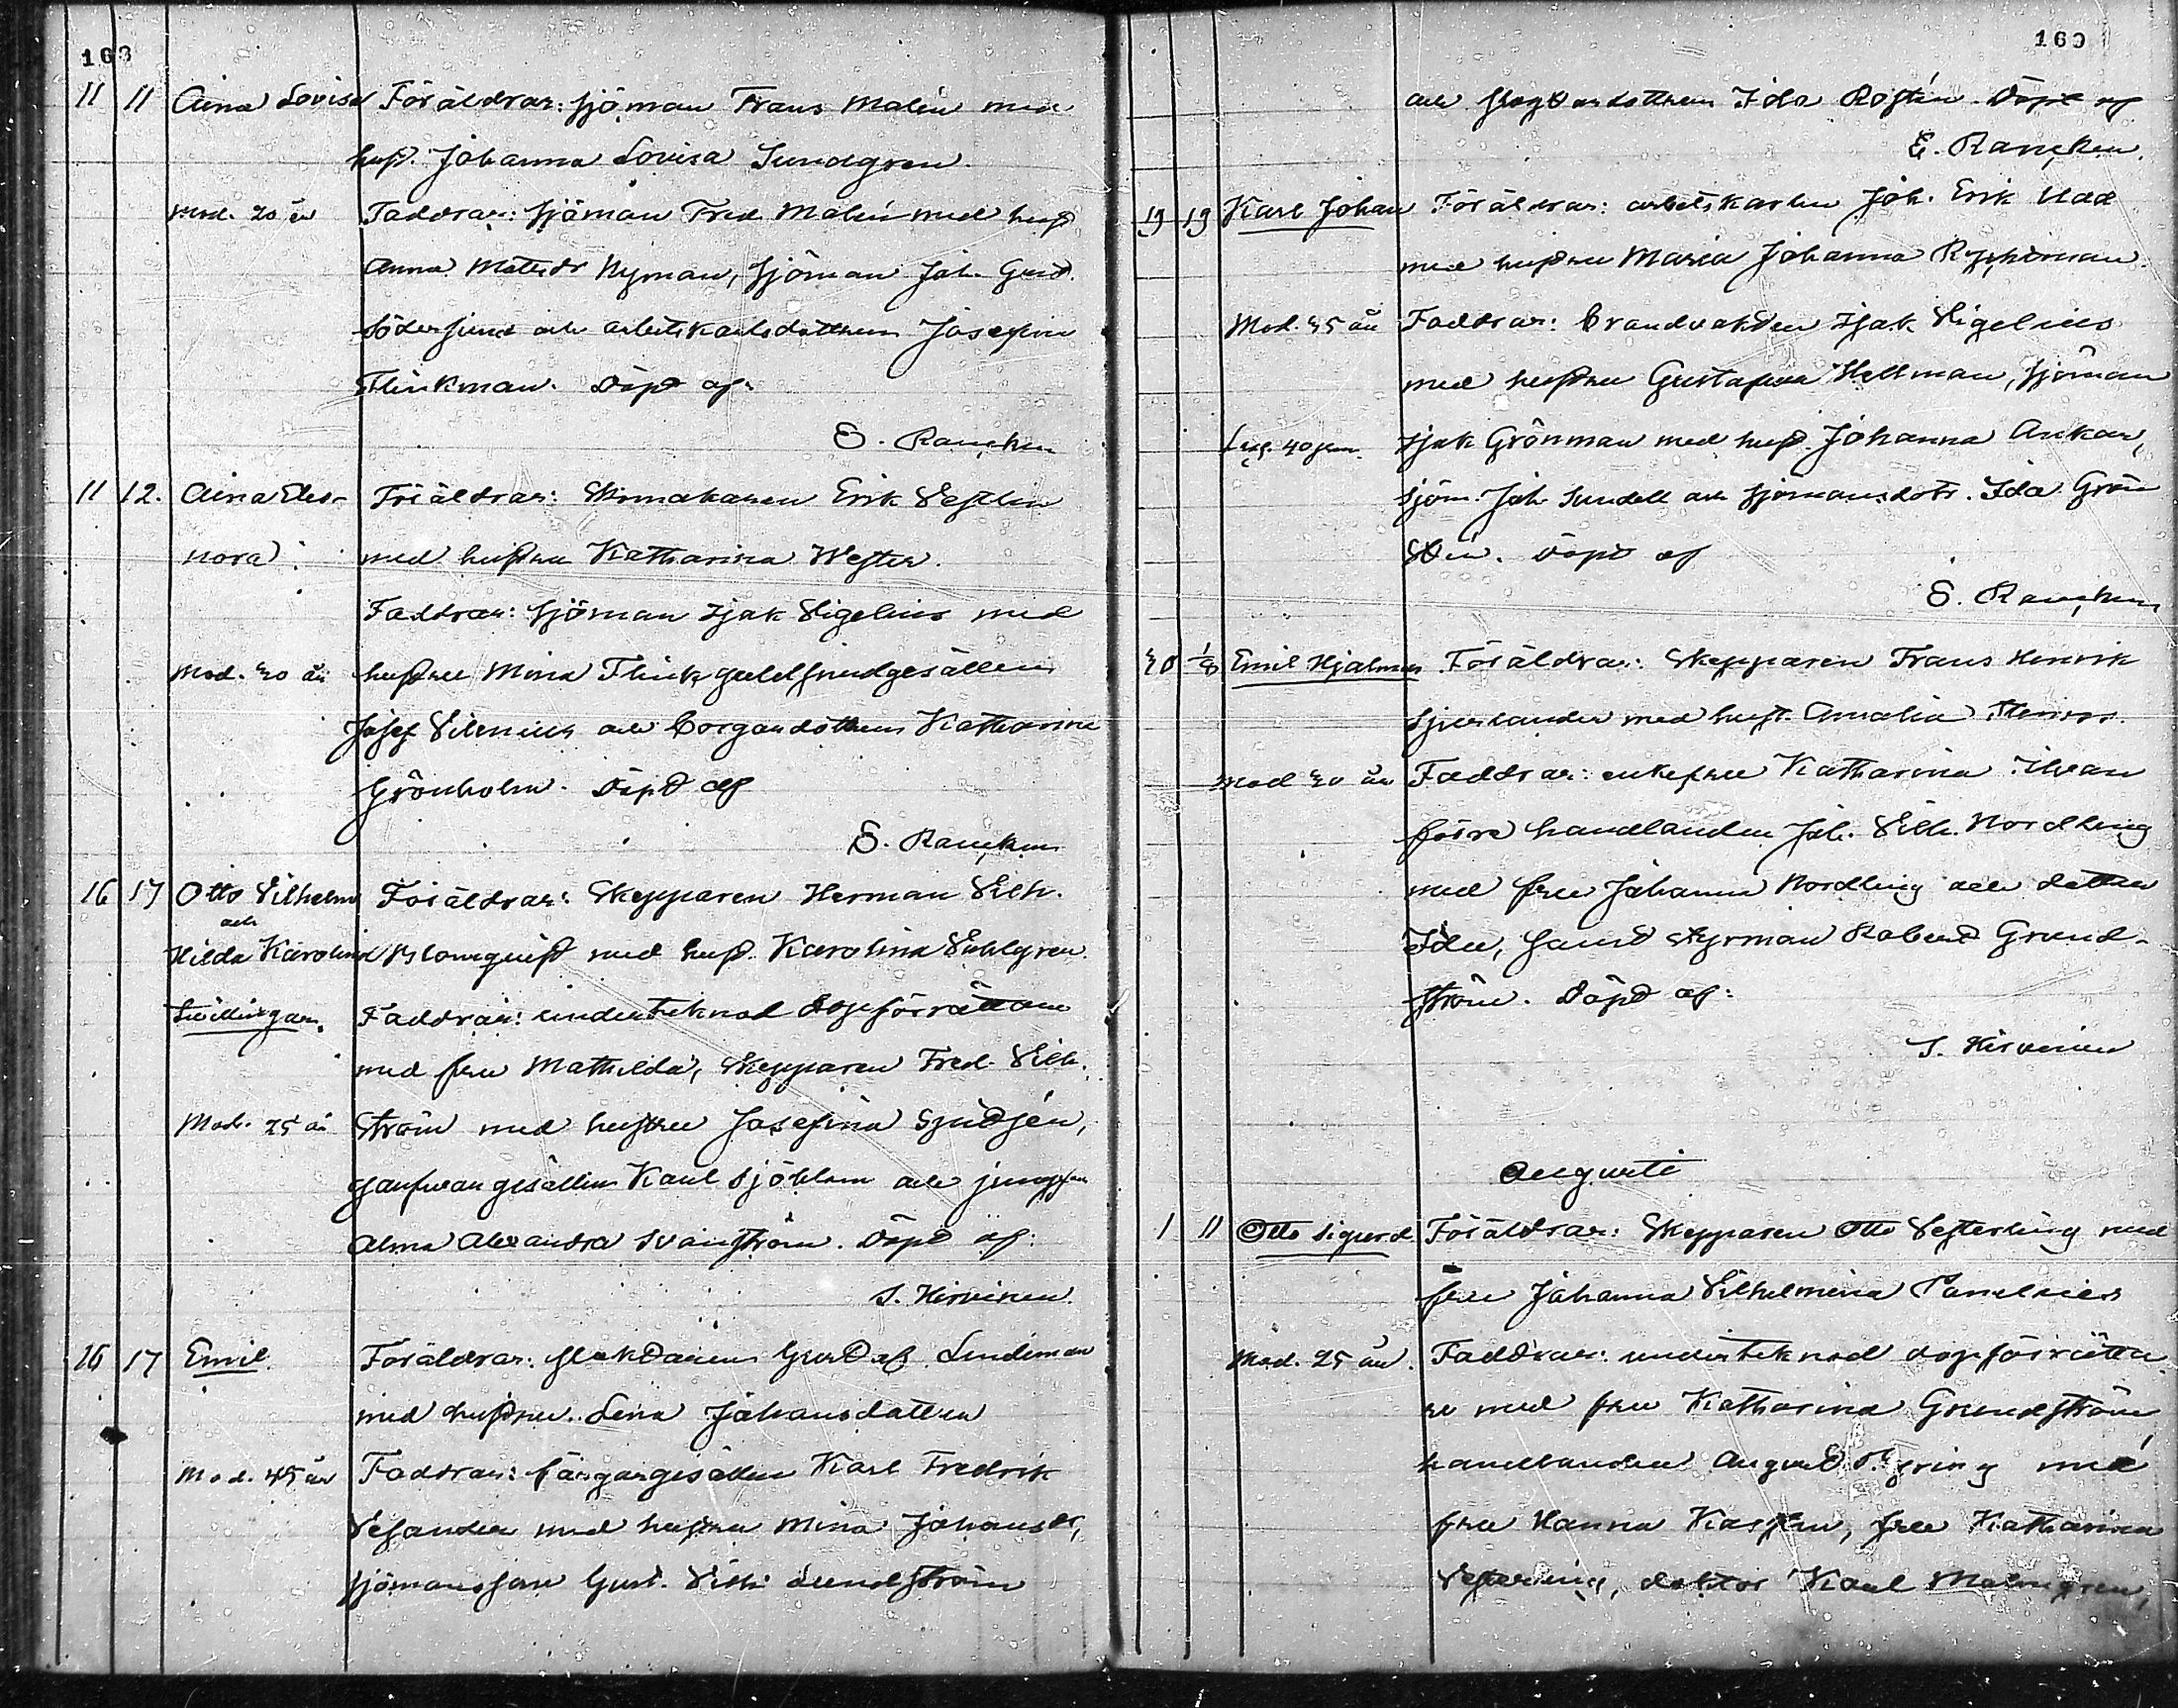 168
11 11 Aina Lovisa Föräldrar: sjöman Frans Malin med
hust. Johanna Lovisa Sundgren.
Mod. 20 år Faddrar: sjöman Fred. Malin med hust
Anna Matilda Nyman, sjöman Joh. Gust.
Söderlund och arbetskarlsdottren Josefin
Flinkman. Döpt af:
E. Rancken
11 12. Aina Eleo- Föräldrar: Skomakaren Erik Veslin
nora med hustru Katharina Wester.
Faddrar: sjöman Isak Sigelius med
Mod. 20 år hustru Mina Flink, guldsmedgesällen
Josef Silenius och borgardottren Katharina
Grönholm. Döpt af
E. Rancken
16 17 Otto Vilhelm Föräldrar: Skepparen Herman Vilh.
och
Hilda Karolina Blomquist med hust. Karolina Vahlgren.
Tvillingar. Faddrar: undertecknad dopförrättare
med fru Mathilda, Skepparen Fred. Vilh.
Mod. 25 år Ström med hustru Josefina
garfvaregesällen Karl Sjöblom och jungfru
Alma Alexandra Svanström. Döpt af:
S. Hirvinen.
16 17 Emil. Föräldrar: Gustaf Lindman
med hustru Lena Johansdotter
Mod. 45 år Faddrar: färgargesällen Karl Fredrik
Vesander med hustru Mina Johansdr,
sjömansson Gust. Vilh. Lundström
169
och dottren Ida Rostén. Döpt af
E. Rancken.
19 19 Karl Johan Föräldrar: arbetskarlen Joh. Erik Udd
med hustru Maria Johanna
Mod. 35 år Faddrar: brandvakten Isak Sigelius
med hustru Gustafva Hellman, sjöman
40 Isak Grönman med hust. Johanna Ankar,
sjöm. Joh. Sundell och sjömansdotr. Ida Grön
Döpt af
E. Rancken
30 1/8 Emil Hjalmar Föräldrar: Skepparen Frans Henrik
med hust. Amalia
Mod 30 år Faddrar: enkefru Katharina
förre handlanden Joh. Vilh. Nordling
med fru Johanna Nordling och dotter
Ida, samt styrman Robert Grund-
ström. Döpt af:
S. Hirvinen
Augusti
1 11 Otto Sigurd Föräldrar: Skepparen Otto Vesterling med
fru Johanna Vilhelmina
Mod. 25 år. Faddrar: undertecknad dopförrätta
re med fru Katharina Grundström
handlanden August med
fru Hanna fru Katharina
Vesterling, doktor Karl Malmgren,